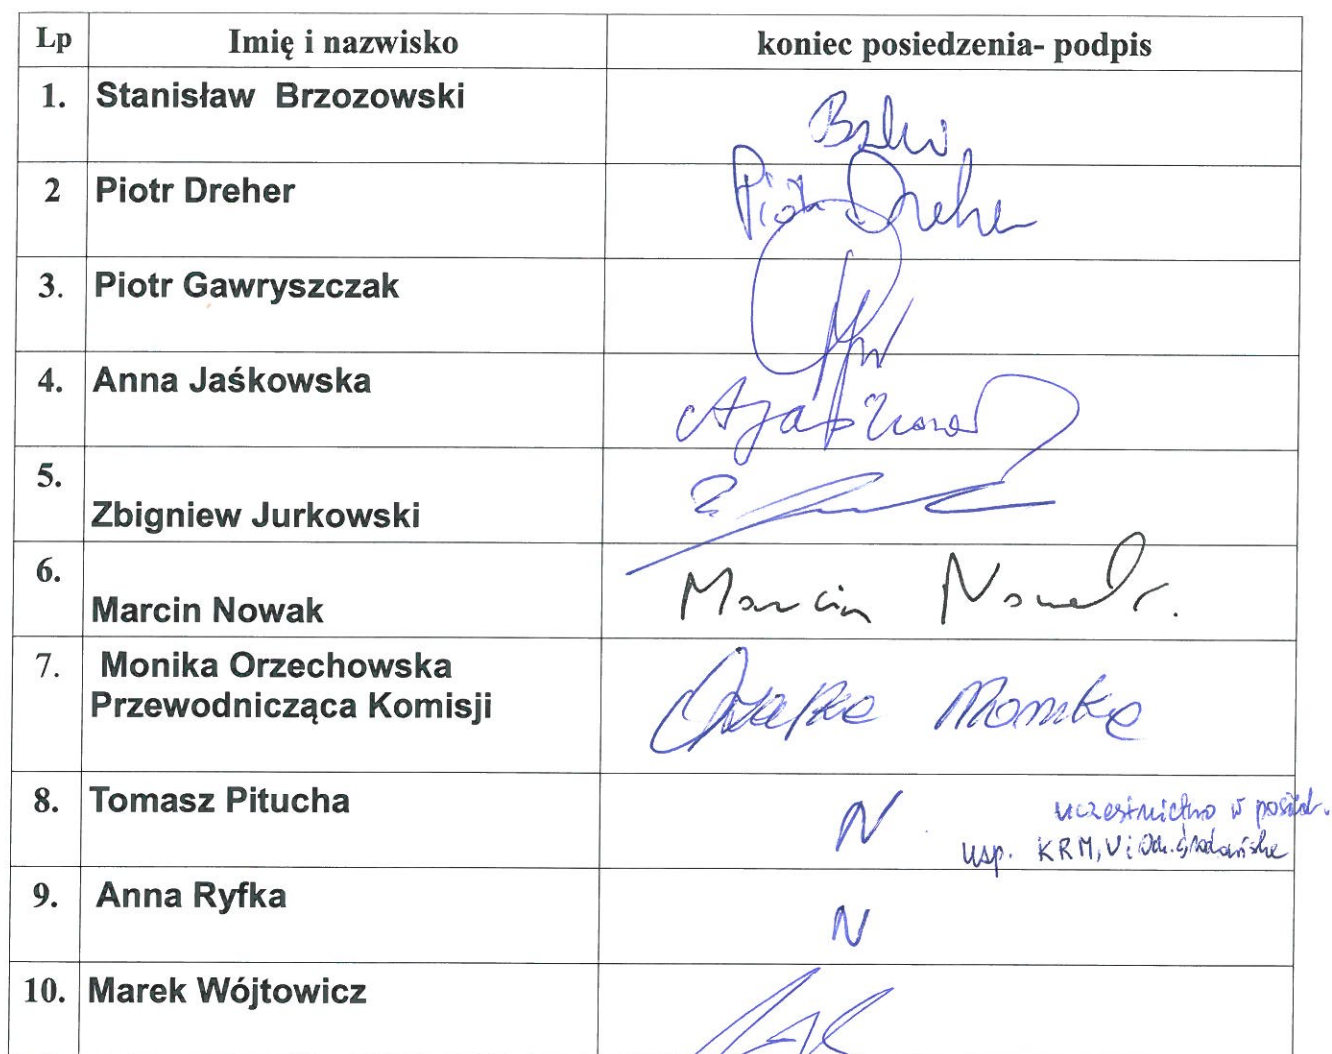 Lp Imię i nazwisko koniec posiedzenia- podpis
1. Stanisław Brzozowski
2 Piotr Dreher Piotr Dreher
3. Piotr Gawryszczak
4. Anna Jaśkowska
5.
Zbigniew Jurkowski
6.
Marcin Nowak Marcin Nowak
7. Monika Orzechowska
Przewodnicząca Komisji Monika
8. Tomasz Pitucha N uczestnictwo w posied.
usp. KRM,
9. Anna Ryfka N
10. Marek Wójtowicz